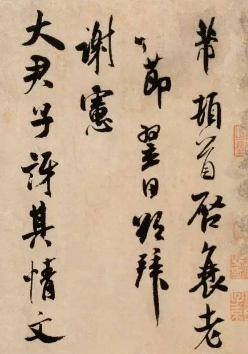 芾頓首啓衰老
節翌日拜
謝憲
大君子訝其情文